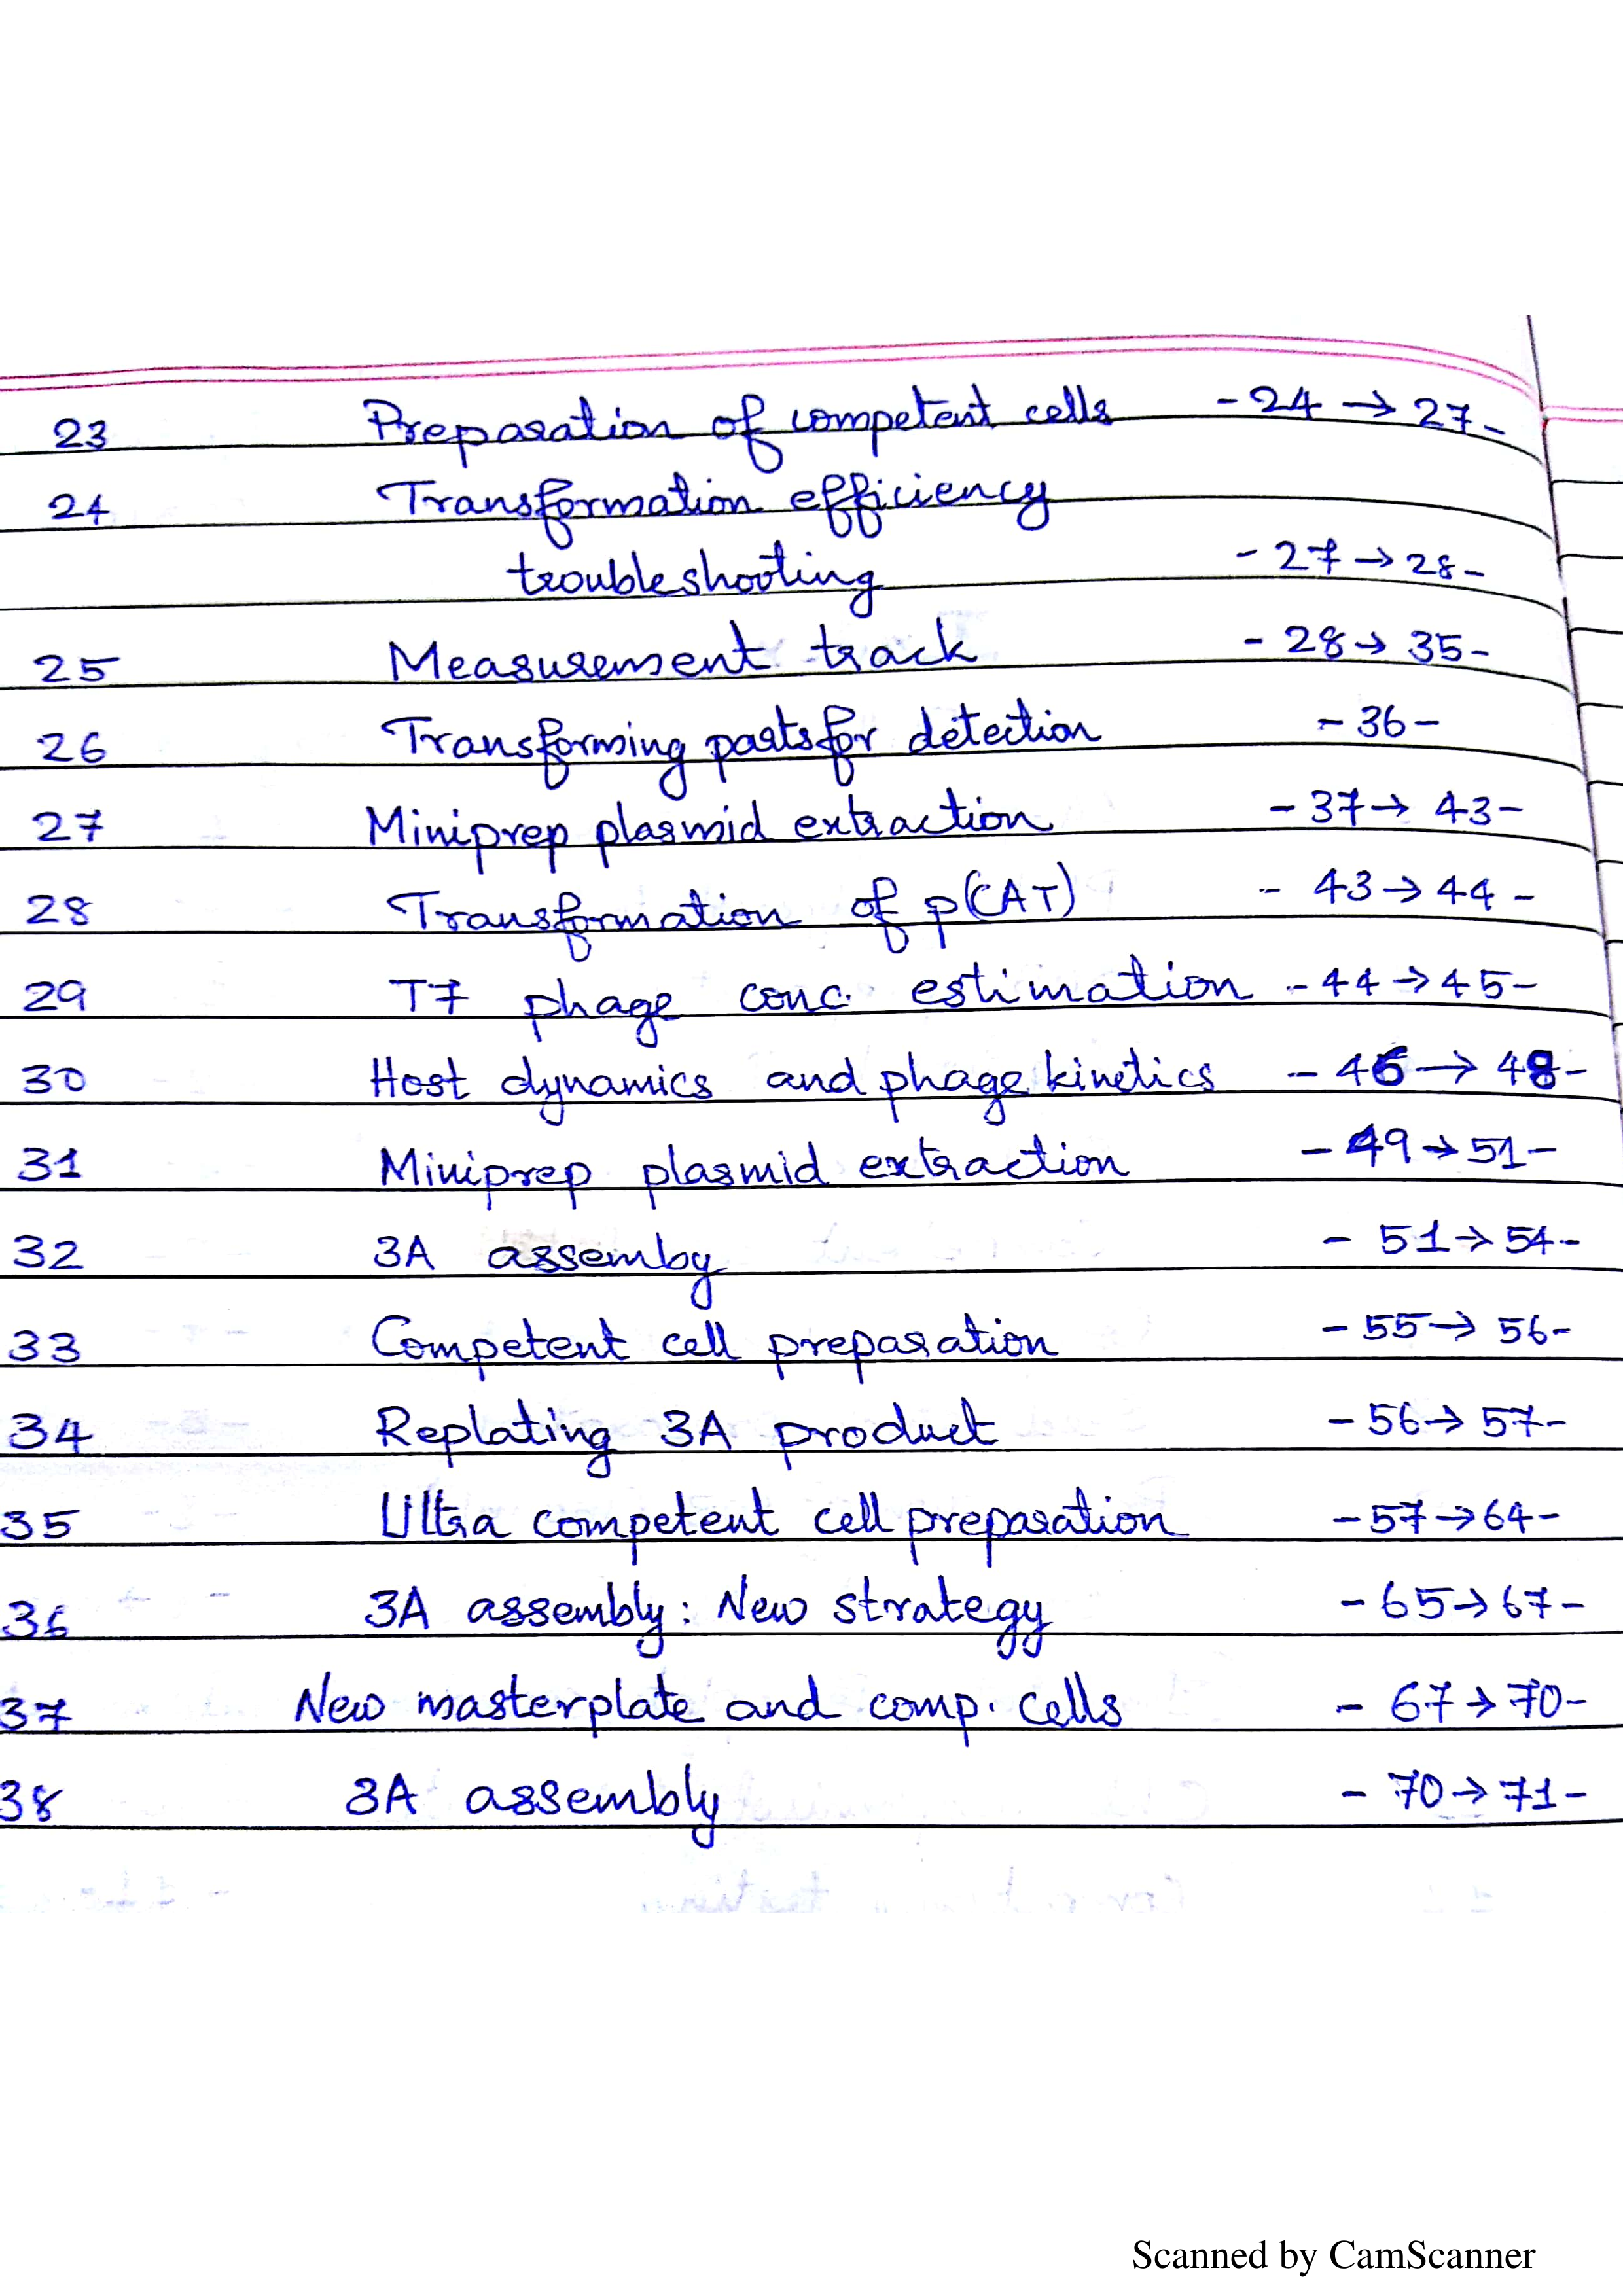 23 Preparation of competent cells - 24 → 27 -
24 Transformation efficiency
troubleshooting - 27 → 28 -
25 Measurement track - 28 → 35 -
26 Transforming parts for detection - 36 -
27 Miniprep plasmid extraction - 37 → 43 -
28 Transformation of p(CAT) - 43 → 44 -
29 T7 phage conc. estimation - 44 → 45 -
30 Host dynamics and phage kinetics - 46 → 48 -
31 Miniprep plasmid extraction - 49 → 51 -
32 3A assemby - 51 → 54 -
33 Competent cell preparation - 55 → 56 -
34 Replating 3A product - 56 → 57 -
35 Ultra competent cell preparation - 57 → 64 -
36 3A assembly: New strategy - 65 → 67 -
37 New masterplate and comp. cells - 67 → 70 -
38 3A assembly - 70 → 71 -
Scanned by CamScanner